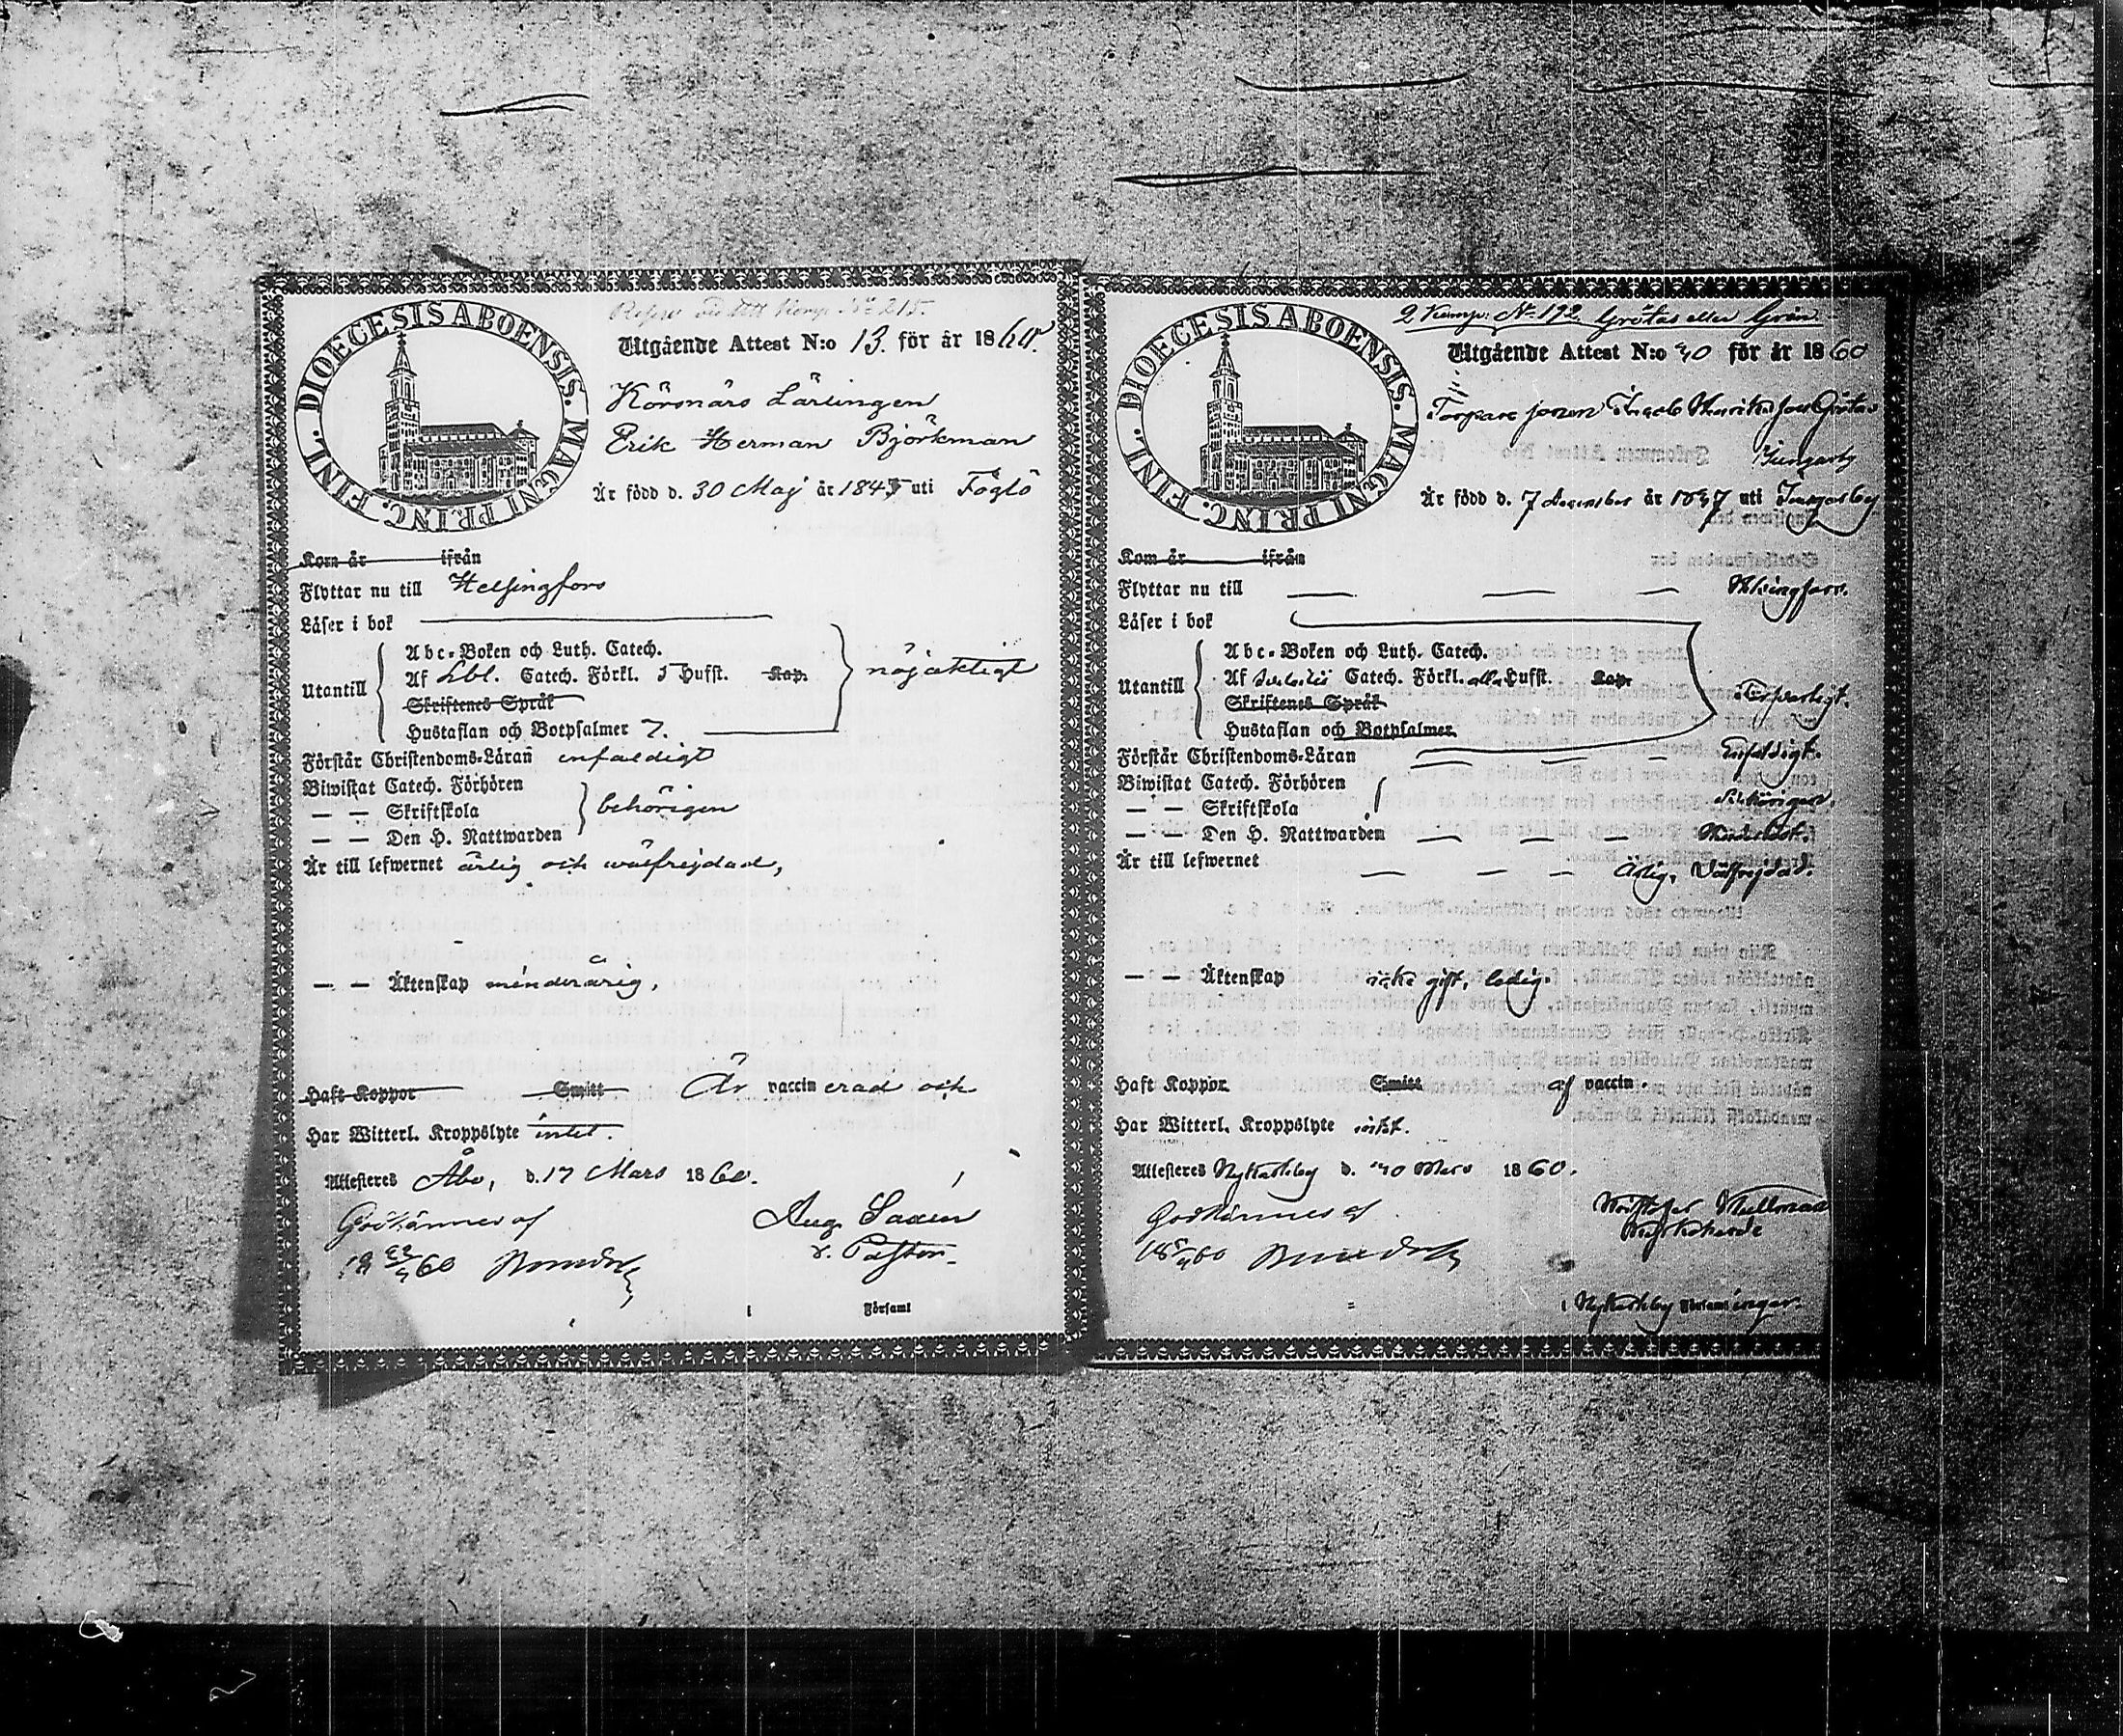 DIOECESIS ABOENSIS. MAGNI PRINC. FINL.
No 215.
Utgående Attest N:o 13. för år 1860.
Körsnärs Lärlingen
Erik Herman Björkman
Är född d. 30 Maj år 1845 uti Föglö
Kom år ifrån
Flyttar nu till Helsingfors
Läser i bok
Utantill
Abc-Boken och Luth. Catech.
Af Lbl. Catech. Förkl. 5 Hufst. Kap.
Skriftenes Språk
Hustaflan och Botpsalmer 7.
nöjaktigt
Förstår Christendoms-Läran enfaldigt
Biwistat Catech. Förhören
— — Skriftskola
— — Den H. Nattwarden
behörigen
Är till lefwernet ärlig och wälfrejdad,
— — Äktenskap minderårig,
Haft Koppor Smitt Är vaccinerad och
Har Witterl. Kroppslyte intet.
Attesteras Åbo, d. 17 Mars 1860.
Godkännes af
Aug.
v. Pastor
Församl
DIOECESIS ABOENSIS. MAGNI PRINC. FINL.
2 Komp: No 192. Grötas eller Grön
Utgående Attest N:o 40 för år 1860
Torpare sonen Jacob
Är född d. 7 december år uti
Kom år ifrån
Flyttar nu till — — — Helsingfors.
Läser i bok
Utantill
Abc-Boken och Luth. Catech.
Af Catech. Förkl. alla Hufst. Kap.
Skriftenes Språk
Hustaflan och Botpsalmer.
Förstår Christendoms-Läran — — Enfaldigt.
Biwistat Catech. Förhören
— — Skriftskola behörigen.
— — Den H. Nattwarden — — —
Är till lefwernet — — — Ärlig, Välfrejdad.
— — Äktenskap icke gift, ledig.
Haft Koppor Smitt af vaccin.
Har Witterl. Kroppslyte intet.
Attesteras Nykarleby d. Mars 1860.
Godkännes af
Kyrkoherde
i Nykarleby Församlingar.